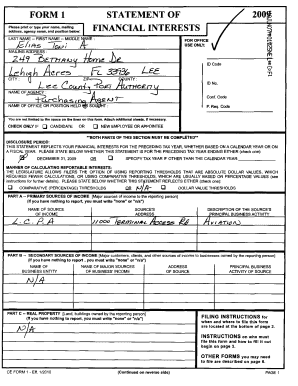 FORM 1
STATEMENT OF
FINANCIAL INTERESTS
2009
Please print or type your name, mailing address, agency name, and position below:
FOR OFFICE USE ONLY:
LAST NAME – FIRST NAME – MIDDLE NAME :
Elias Toni A
MAILING ADDRESS :
249 Bethany Home Dr
Lehigh Acres FL 33936 LEE
CITY : ZIP : COUNTY :
Lee County Port Authority
NAME OF AGENCY :
Purchasing Agent
NAME OF OFFICE OR POSITION HELD OR SOUGHT :
ID Code
ID No.
Conf. Code
P. Req. Code
You are not limited to the space on the lines on this form. Attach additional sheets, if necessary.
CHECK ONLY IF CANDIDATE OR NEW EMPLOYEE OR APPOINTEE
**BOTH PARTS OF THIS SECTION MUST BE COMPLETED**
DISCLOSURE PERIOD:
THIS STATEMENT REFLECTS YOUR FINANCIAL INTERESTS FOR THE PRECEDING TAX YEAR, WHETHER BASED ON A CALENDAR YEAR OR ON A FISCAL YEAR. PLEASE STATE BELOW WHETHER THIS STATEMENT IS FOR THE PRECEDING TAX YEAR ENDING EITHER (check one):
DECEMBER 31, 2009 OR SPECIFY TAX YEAR IF OTHER THAN THE CALENDAR YEAR:
MANNER OF CALCULATING REPORTABLE INTERESTS:
THE LEGISLATURE ALLOWS FILERS THE OPTION OF USING REPORTING THRESHOLDS THAT ARE ABSOLUTE DOLLAR VALUES, WHICH REQUIRES FEWER CALCULATIONS, OR USING COMPARATIVE THRESHOLDS, WHICH ARE USUALLY BASED ON PERCENTAGE VALUES (see instructions for further details). PLEASE STATE BELOW WHETHER THIS STATEMENT REFLECTS EITHER (check one):
COMPARATIVE (PERCENTAGE) THRESHOLDS OR N/A DOLLAR VALUE THRESHOLDS
PART A -- PRIMARY SOURCES OF INCOME [Major sources of income to the reporting person]
(If you have nothing to report, you must write "none" or "n/a")
NAME OF SOURCE OF INCOME
SOURCE'S ADDRESS
DESCRIPTION OF THE SOURCE'S PRINCIPAL BUSINESS ACTIVITY
L.C.P.A 11000 Terminal Access Rd Aviation
PART B -- SECONDARY SOURCES OF INCOME [Major customers, clients, and other sources of income to businesses owned by the reporting person]
(If you have nothing to report, you must write "none" or "n/a")
NAME OF BUSINESS ENTITY
NAME OF MAJOR SOURCES OF BUSINESS' INCOME
ADDRESS OF SOURCE
PRINCIPAL BUSINESS ACTIVITY OF SOURCE
N/A
PART C -- REAL PROPERTY [Land, buildings owned by the reporting person]
(If you have nothing to report, you must write "none" or "n/a")
N/A
FILING INSTRUCTIONS for when and where to file this form are located at the bottom of page 2.
INSTRUCTIONS on who must file this form and how to fill it out begin on page 3.
OTHER FORMS you may need to file are described on page 6.
CE FORM 1 - Eff. 1/2010
(Continued on reverse side)
PAGE 1